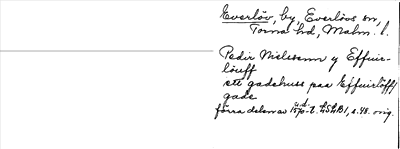 Everlöv, by, Everlövs sn,
Torna hd, Malm. l.
Pedir Nielssenn y Effuir-
löuff
ett gadehuss paa Effuirlöff
gade
förra delen av 1570-t. LSLB1, s. 48. orig.